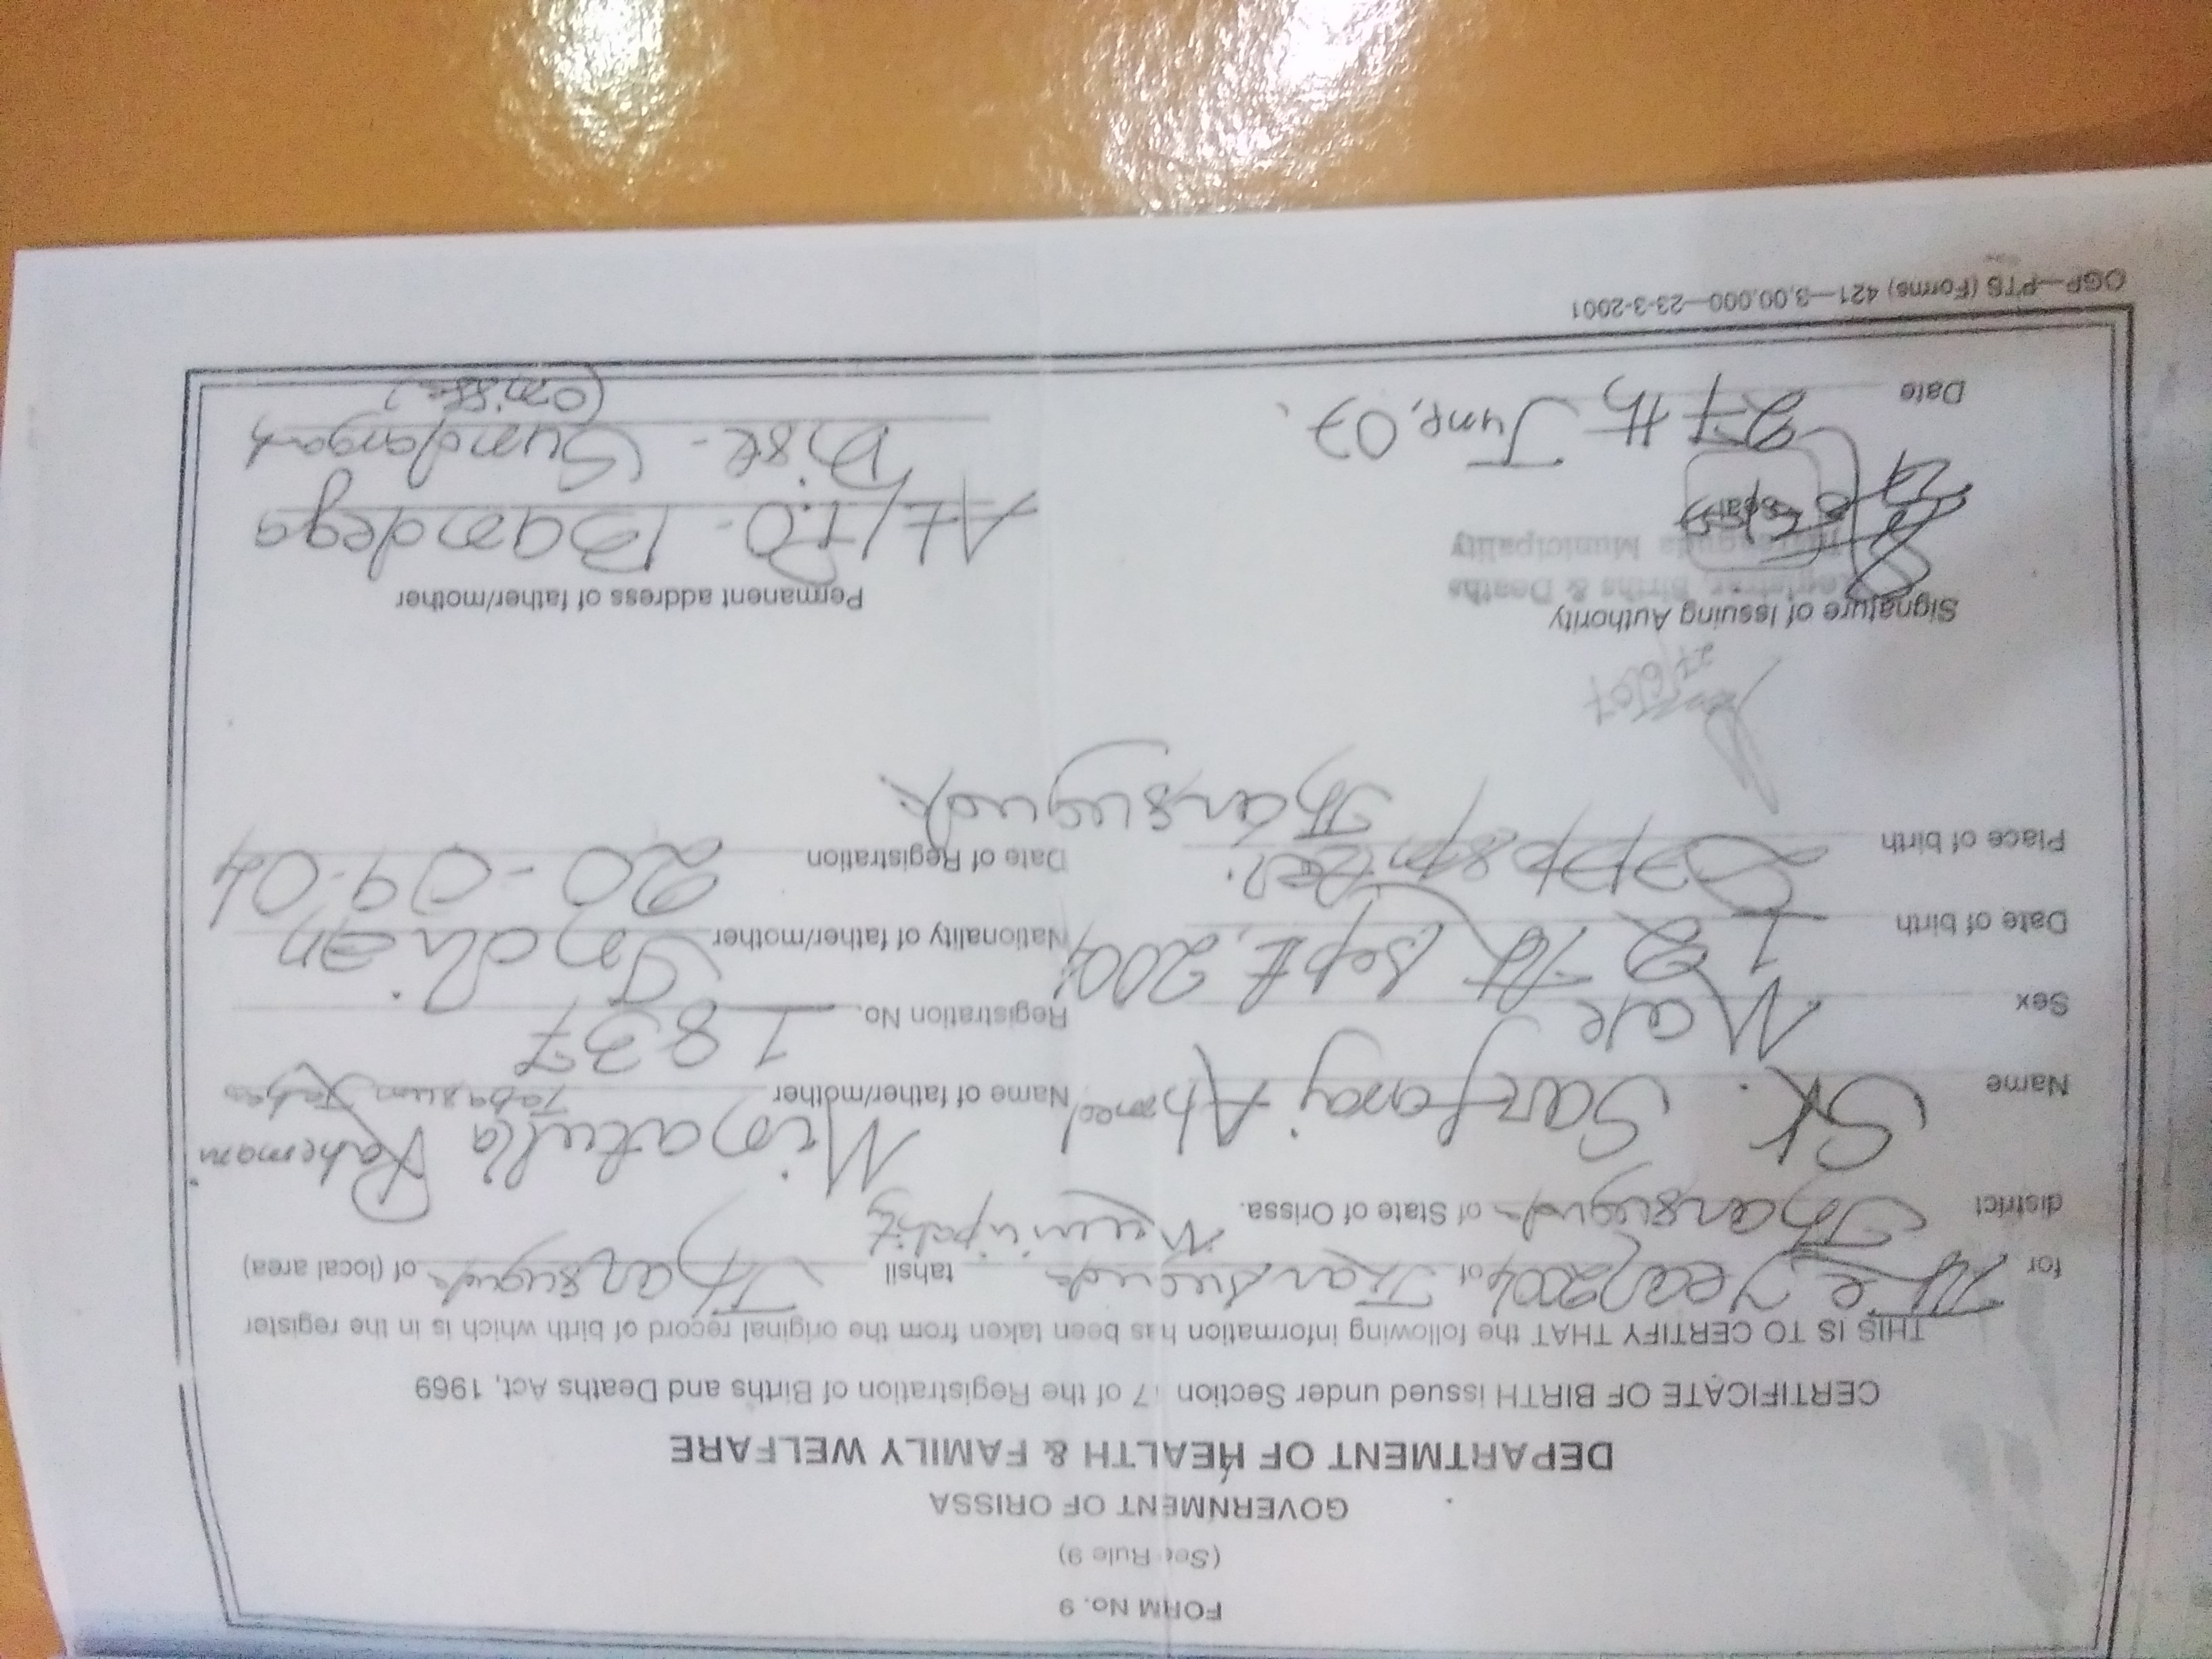 FORM No. 9
(See Rule 9)
GOVERNMENT OF ORISSA
DEPARTMENT OF HEALTH & FAMILY WELFARE
CERTIFICATE OF BIRTH issued under Section 17 of the Registration of Births and Deaths Act, 1969
THIS IS TO CERTIFY THAT the following information has been taken from the original record of birth which is in the register
for The Year 2004 of Jharsuguda tahsil Jharsuguda of (local area)
Municipality
district Jharsuguda of State of Orissa.
Name Sk. Sarfaraj Ahmed
Name of father/mother Neimatulla Rahemani
Tabasum
Sex Male
Registration No. 1837
Date of birth 12th Sept, 2004
Nationality of father/mother Indian
Place of birth
Jharsuguda.
Date of Registration 20-09-04
27/6/07
Signature of Issuing Authority
Registrar, Births & Deaths
Jharsuguda Municipality
Seal
Date 27th June, 07.
Permanent address of father/mother
At/PO- Bamdega
Dist- Sundargarh
(Orissa)
OGP—PTS (Forms) 421—3,00,000—23-3-2001